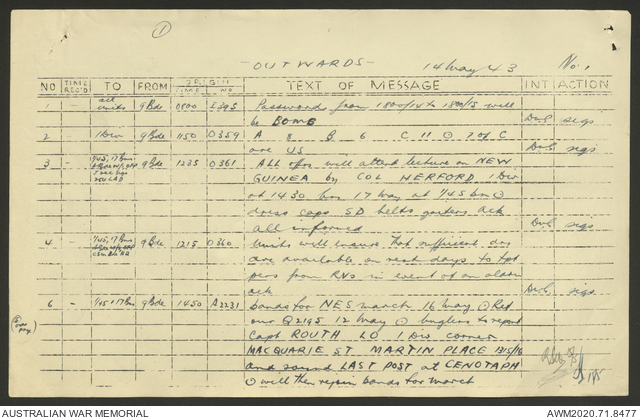 ①
- OUTWARDS - 14 May 43 No. 1
NO TIME REC'D TO FROM ORIGIN TIME NO TEXT OF MESSAGE INT ACTION
1 - all units 9 Bde 0800 Passwords from 1800/14 to 1800/15 will
be BOMB sigs
2 - 1 Div 9 Bde 1150 O359 A 8 B 6 C 11 ⊙ 7 of C
are US sigs
3 - 9 Bde 1235 O361 ALL will attend lecture on NEW
GUINEA by COL HERFORD 1 Div
at 1430 hrs 17 May at 1/45 bn ⊙
dress caps SD belts gaiters ack
all informed sigs
4 - 9 Bde 1215 O360 Units will ensure that sufficient
are available on rest days to tpt
pers from in event of an alarm
ack sigs
6 - 1/45 & 17 Bn 9 Bde 1450 A2231 bands for NES march 16 May ⊙ Ref
our Q2195 12 May ⊙ buglers to report
Capt ROUTH LO 1 Div corner
MACQUARIE ST MARTIN PLACE 1315/16
and sound LAST POST at CENOTAPH
⊙ will then rejoin bands for march
AUSTRALIAN WAR MEMORIAL AWM2020.71.8477